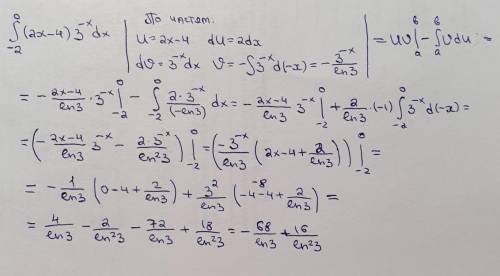 ∫₋₂⁰ (2x-4) 3⁻ˣ dx | По частям: u = 2x-4 du = 2dx dv = 3⁻ˣ dx v = -∫3⁻ˣ d(-x) = -3⁻ˣ/ln3 | = uv|ₐᵇ - ∫ₐᵇ v du =
= -(2x-4)/ln3 · 3⁻ˣ |₋₂⁰ - ∫₋₂⁰ 2·3⁻ˣ/(-ln3) dx = -(2x-4)/ln3 3⁻ˣ |₋₂⁰ + 2/ln3 · (-1) ∫₋₂⁰ 3⁻ˣ d(-x) =
= (-(2x-4)/ln3 3⁻ˣ - 2·3⁻ˣ/ln²3) |₋₂⁰ = (-3⁻ˣ/ln3 (2x-4 + 2/ln3)) |₋₂⁰ =
= -1/ln3 (0-4 + 2/ln3) + 3²/ln3 (-4-4 + 2/ln3) = -8
= 4/ln3 - 2/ln²3 - 72/ln3 + 18/ln²3 = -68/ln3 + 16/ln²3